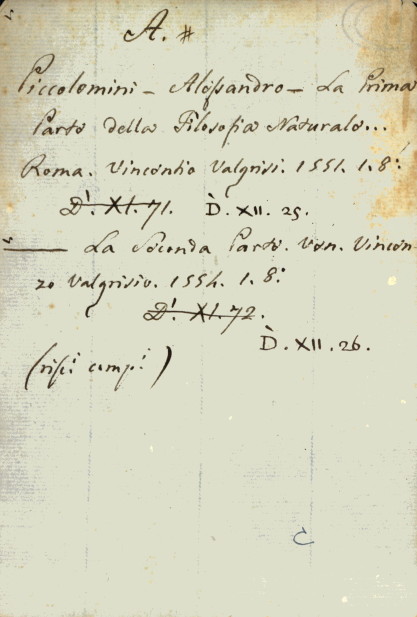 A. #
Piccolomini - Alessandro - La Prima
Parte della Filosofia Naturale...
Roma. Vincentio Valgrisi. 1551. 1. 8.º
D'. XI. 71. D̀. XII. 25.
—— La Seconda Parte. Ven. Vincen-
zo Valgrisio. 1554. 1. 8.º
D'. XI. 72.
D̀. XII. 26.
C